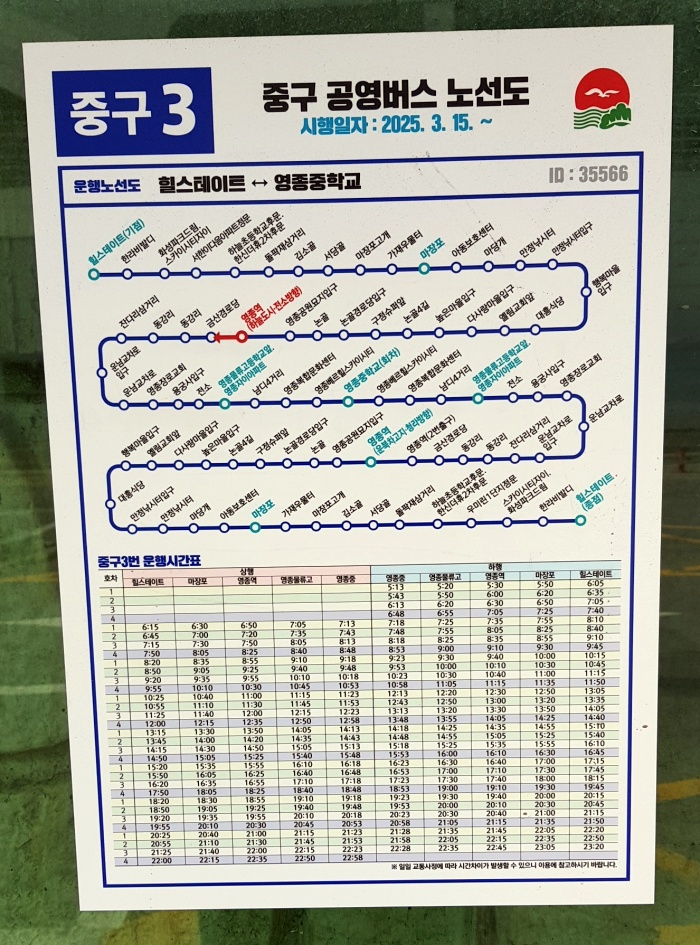 중구 3
중구 공영버스 노선도
시행일자 : 2025. 3. 15. ~
운행노선도 힐스테이트 ↔ 영종중학교
ID : 35566
힐스테이트(기점)
한라비발디
화성파크드림 스카이시티자이
서한이다음아파트정문
하늘초등학교후문.
한신더휴2차후문
돌팍재삼거리
김소골
서당골
마장포고개
가재우물터
마장포
아동보호센터
마당개
만정낚시터
만정낚시터입구
행복마을
입구
대흥식당
엘림교회앞
다사랑마을입구
높은마을입구
논골4길
구정수퍼앞
논골경로당입구
논골
영종공원묘지입구
영종역
(하늘도시·전소방향)
금산경로당
동강리
동강리
잔다리삼거리
운남교차로
입구
운남교차로
영종장로교회
용궁사입구
전소
영종물류고등학교앞.
영종자이아파트
남디4거리
영종복합문화센터
영종베르힐스카이시티
영종중학교(회차)
영종베르힐스카이시티
영종복합문화센터
남디4거리
영종물류고등학교앞.
영종자이아파트
전소
용궁사입구
영종장로교회
운남교차로
운남교차로
입구
잔다리삼거리
동강리
동강리
금산경로당
영종역(2번출구)
영종역
(운북차고지·청라방향)
영종공원묘지입구
논골
논골경로당입구
구정수퍼앞
논골4길
높은마을입구
다사랑마을입구
엘림교회앞
행복마을입구
대흥식당
만정낚시터입구
만정낚시터
마당개
아동보호센터
마장포
가재우물터
마장포고개
김소골
서당골
돌팍재삼거리
하늘초등학교후문.
한신더휴2차후문
우미린1단지정문
스카이시티자이.
화성파크드림
한라비발디
힐스테이트
(종점)
중구3번 운행시간표
호차 상행 하행
힐스테이트 마장포 영종역 영종물류고 영종중 영종중 영종물류고 영종역 마장포 힐스테이트
1 5:13 5:20 5:30 5:50 6:05
2 5:43 5:50 6:00 6:20 6:35
3 6:13 6:20 6:30 6:50 7:05
4 6:48 6:55 7:05 7:25 7:40
1 6:15 6:30 6:50 7:05 7:13 7:18 7:25 7:35 7:55 8:10
2 6:45 7:00 7:20 7:35 7:43 7:48 7:55 8:05 8:25 8:40
3 7:15 7:30 7:50 8:05 8:13 8:18 8:25 8:35 8:55 9:10
4 7:50 8:05 8:25 8:40 8:48 8:53 9:00 9:10 9:30 9:45
1 8:20 8:35 8:55 9:10 9:18 9:23 9:30 9:40 10:00 10:15
2 8:50 9:05 9:25 9:40 9:48 9:53 10:00 10:10 10:30 10:45
3 9:20 9:35 9:55 10:10 10:18 10:23 10:30 10:40 11:00 11:15
4 9:55 10:10 10:30 10:45 10:53 10:58 11:05 11:15 11:35 11:50
1 10:25 10:40 11:00 11:15 11:23 12:13 12:20 12:30 12:50 13:05
2 10:55 11:10 11:30 11:45 11:53 12:43 12:50 13:00 13:20 13:35
3 11:25 11:40 12:00 12:15 12:23 13:13 13:20 13:30 13:50 14:05
4 12:00 12:15 12:35 12:50 12:58 13:48 13:55 14:05 14:25 14:40
1 13:15 13:30 13:50 14:05 14:13 14:18 14:25 14:35 14:55 15:10
2 13:45 14:00 14:20 14:35 14:43 14:48 14:55 15:05 15:25 15:40
3 14:15 14:30 14:50 15:05 15:13 15:18 15:25 15:35 15:55 16:10
4 14:50 15:05 15:25 15:40 15:48 15:53 16:00 16:10 16:30 16:45
1 15:20 15:35 15:55 16:10 16:18 16:23 16:30 16:40 17:00 17:15
2 15:50 16:05 16:25 16:40 16:48 16:53 17:00 17:10 17:30 17:45
3 16:20 16:35 16:55 17:10 17:18 17:23 17:30 17:40 18:00 18:15
4 17:50 18:05 18:25 18:40 18:48 18:53 19:00 19:10 19:30 19:45
1 18:20 18:30 18:55 19:10 19:18 19:23 19:30 19:40 20:00 20:15
2 18:50 19:05 19:25 19:40 19:48 19:53 20:00 20:10 20:30 20:45
3 19:20 19:35 19:55 20:10 20:18 20:23 20:30 20:40 21:00 21:15
4 19:55 20:10 20:30 20:45 20:53 20:58 21:05 21:15 21:35 21:50
1 20:25 20:40 21:00 21:15 21:23 21:28 21:35 21:45 22:05 22:20
2 20:55 21:10 21:30 21:45 21:53 21:58 22:05 22:15 22:35 22:50
3 21:25 21:40 22:00 22:15 22:23 22:28 22:35 22:45 23:05 23:20
4 22:00 22:15 22:35 22:50 22:58
※ 일일 교통사정에 따라 시간차이가 발생할 수 있으니 이용에 참고하시기 바랍니다.